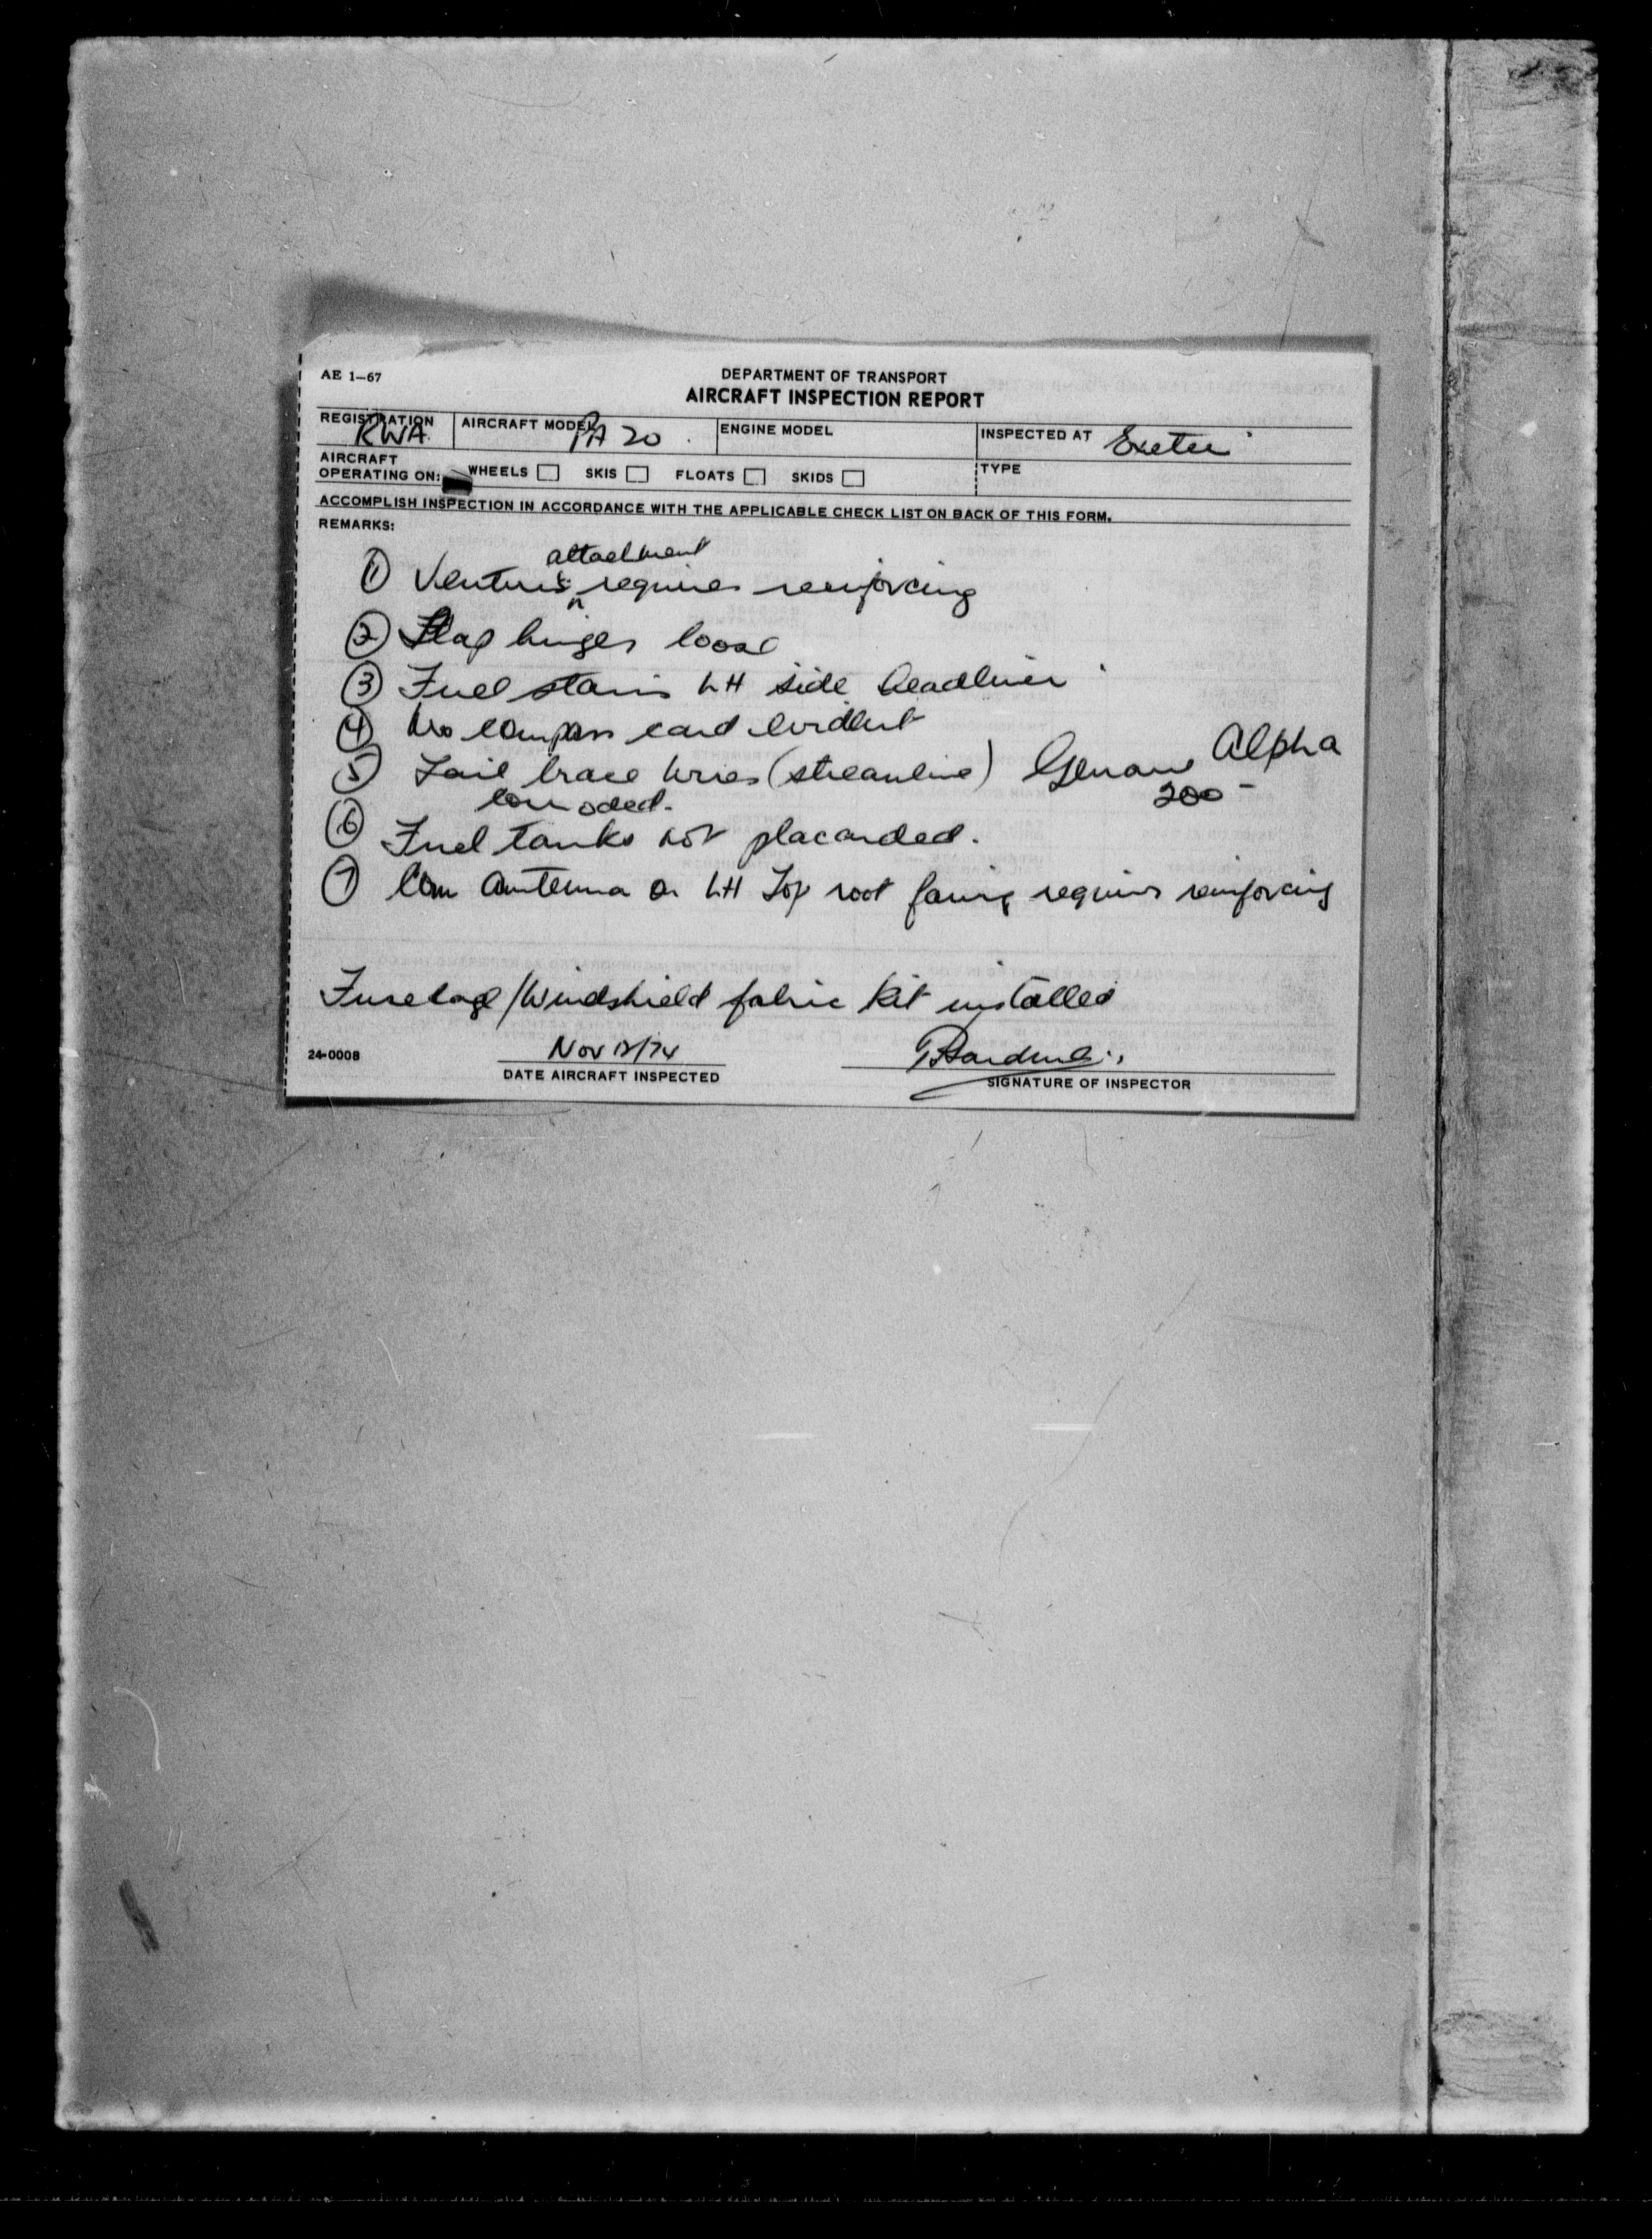 AE 1-67
DEPARTMENT OF TRANSPORT
AIRCRAFT INSPECTION REPORT
REGISTRATION RWA AIRCRAFT MODEL PA 20 ENGINE MODEL INSPECTED AT Exeter
AIRCRAFT OPERATING ON: WHEELS SKIS FLOATS SKIDS TYPE
ACCOMPLISH INSPECTION IN ACCORDANCE WITH THE APPLICABLE CHECK LIST ON BACK OF THIS FORM.
REMARKS:
attachment
① Venturi requires reinforcing
② Flap hinges loose
③ Fuel stains LH side headliner
④ No compass card evident
⑤ Tail brace wires (streamline) Alpha
corroded. 200
⑥ Fuel tanks not placarded.
⑦ Com Antenna on LH Top root faring requires reinforcing
Fuselage/Windshield fabric kit installed
24-0008 Nov /74
DATE AIRCRAFT INSPECTED SIGNATURE OF INSPECTOR